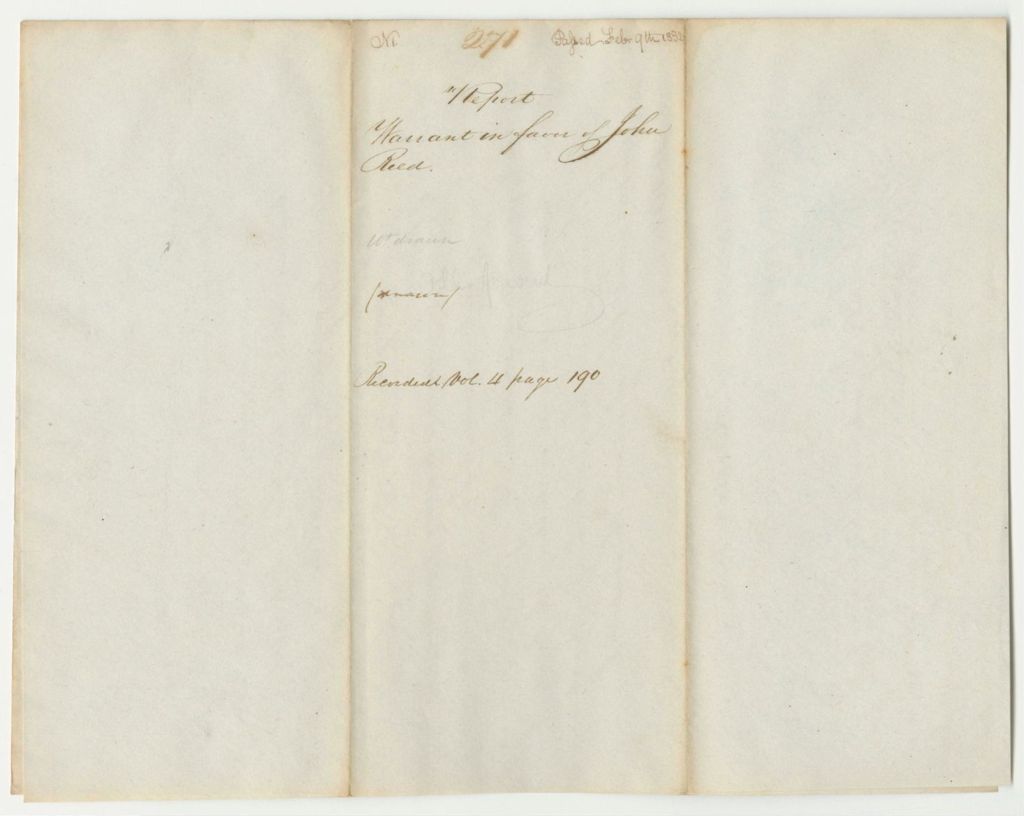 No 271 Passed Febr 9th 1832
Report
Warrant in favor of John
Reed.
Wt drawn
Recorded Vol. 4 page 190